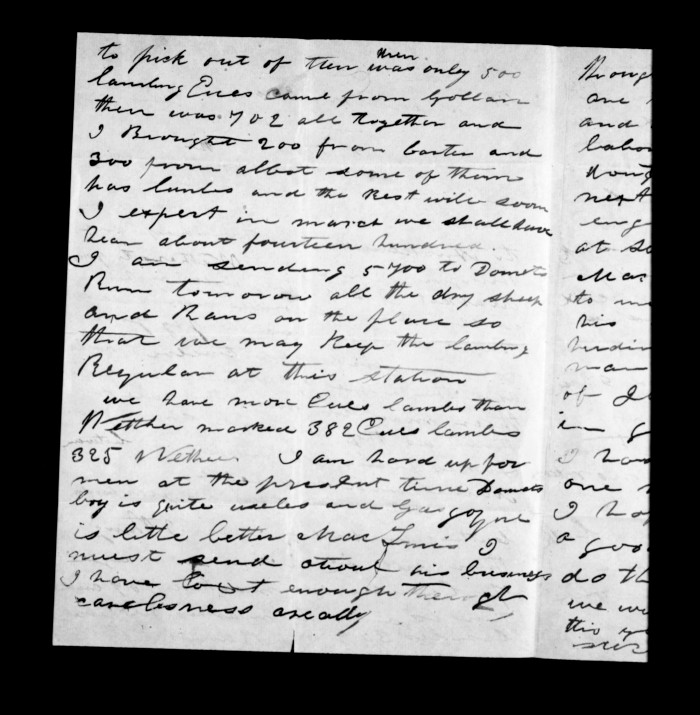 to pick out of them then was only 500
lambing Ewes came from Gollan
there was 702 all together and
I Brought 200 from barter and
300 from albot some of them
has lambs and the Rest will soon
I expect in march we shall have
hear about fourteen hundred.
I am sending 5700 to Domets
Run tomorow all the dry sheep
and Rams on the place so
that we may Keep the lambing
Regular at this station
we have more Ewes lambs than
Wether marked 382 Ewes lambs
325 Wether I am hard up for
men at the present time Domets
boy is quite useles and Gasgoyne
is little better Mac I
must send about his business
I have lost enough through
carelesness aready
thoug
are
and
labo
next
eng
at
Mac
to
his
man
of
in g
I hav
one
I ho
a goo
do th
we
this